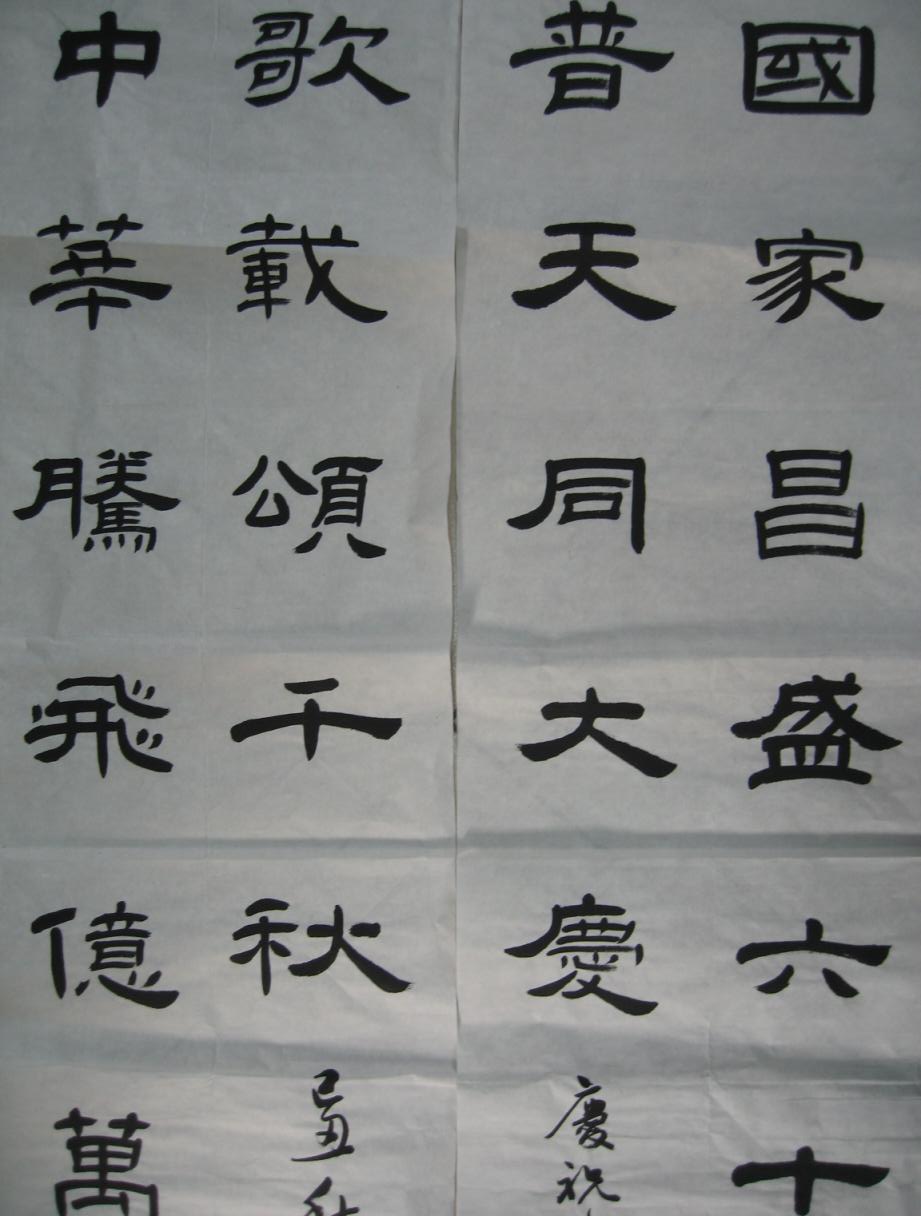 國家昌盛六十
普天同大慶
慶祝
中華騰飛億萬
歌載頌千秋
己丑秋